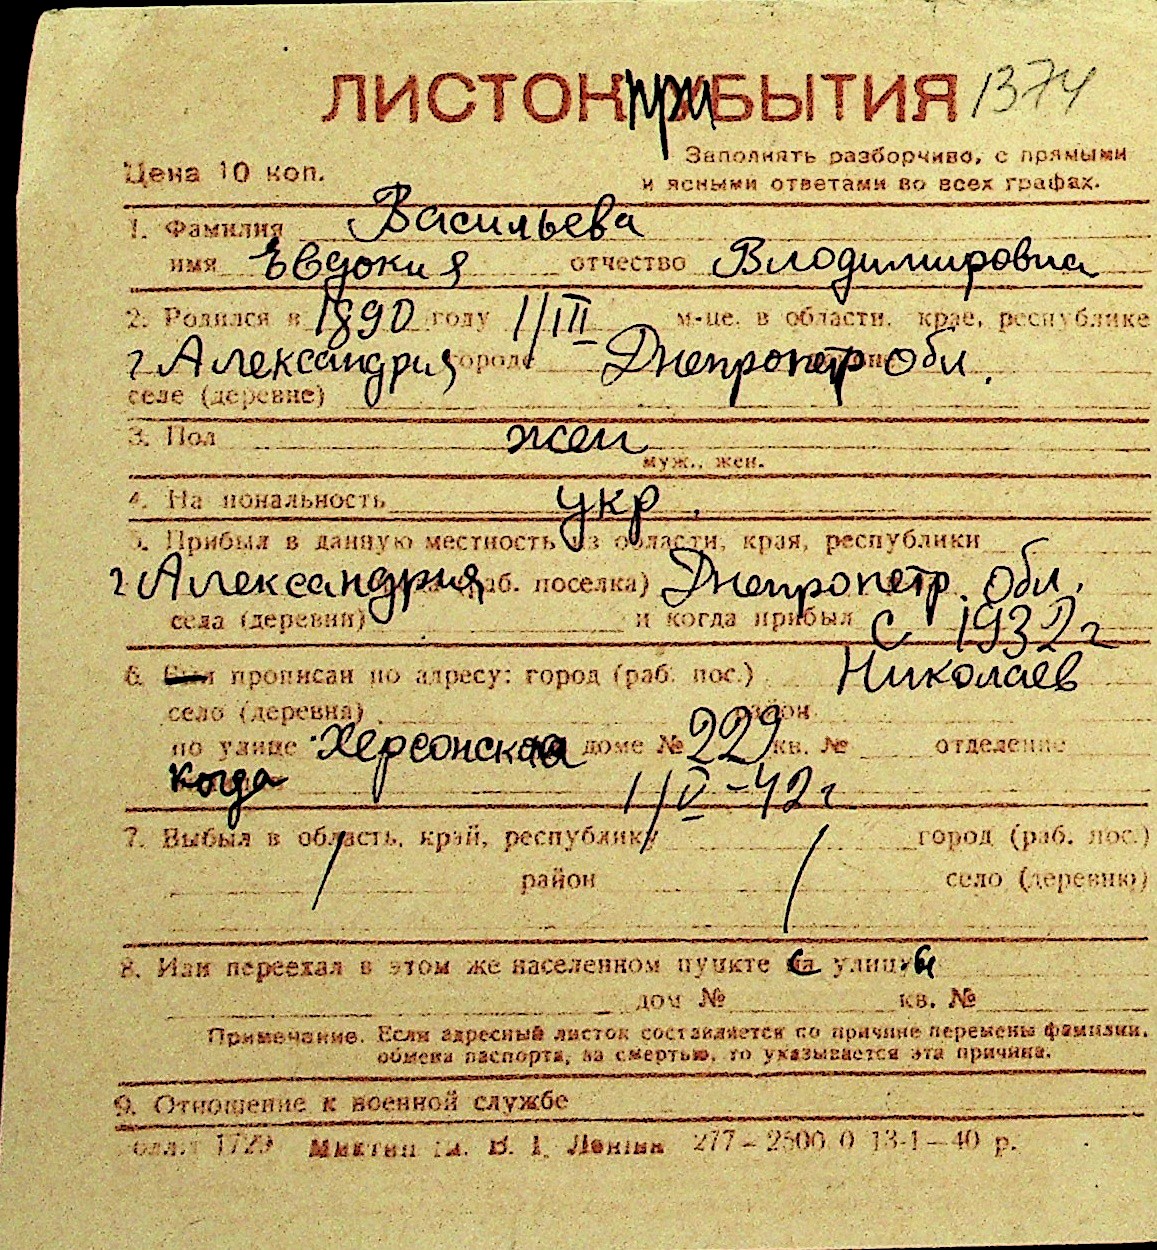 ЛИСТОК ПРИБЫТИЯ 1374
Цена 10 коп.
Заполнять разборчиво, с прямыми
и ясными ответами во всех графах.
1. Фамилия Васильева
имя Евдокия отчество Владимировна
2. Родился в 1890 году 1/III м-це, в области, крае, республике
г Александрия городе Днепропетр обл.
селе (деревне)
3. Пол жен
муж., жен.
4. Национальность укр.
5. Прибыл в данную местность из области, края, республики
г Александрия (раб. поселка) Днепропетр. обл.
села (деревни) и когда прибыл с 1932 г
6. прописан по адресу: город (раб. пос.) Николаев
село (деревня) район
по улице Херсонская доме № 229 кв. № отделение
когда 1/V-42 г
7. Выбыл в область, край, республику город (раб. пос.)
район село (деревню)
8. Или переехал в этом же населенном пункте с улицы
дом № кв. №
Примечание. Если адресный листок составляется по причине перемены фамилии,
обмена паспорта, за смертью, то указывается эта причина.
9. Отношение к военной службе
1729 им. В. І. Леніна 277—2500.0 13-1—40 р.